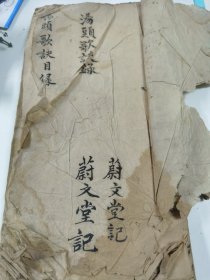 湯頭歌訣錄
湯頭歌訣目録
蔚文堂記
蔚文堂記